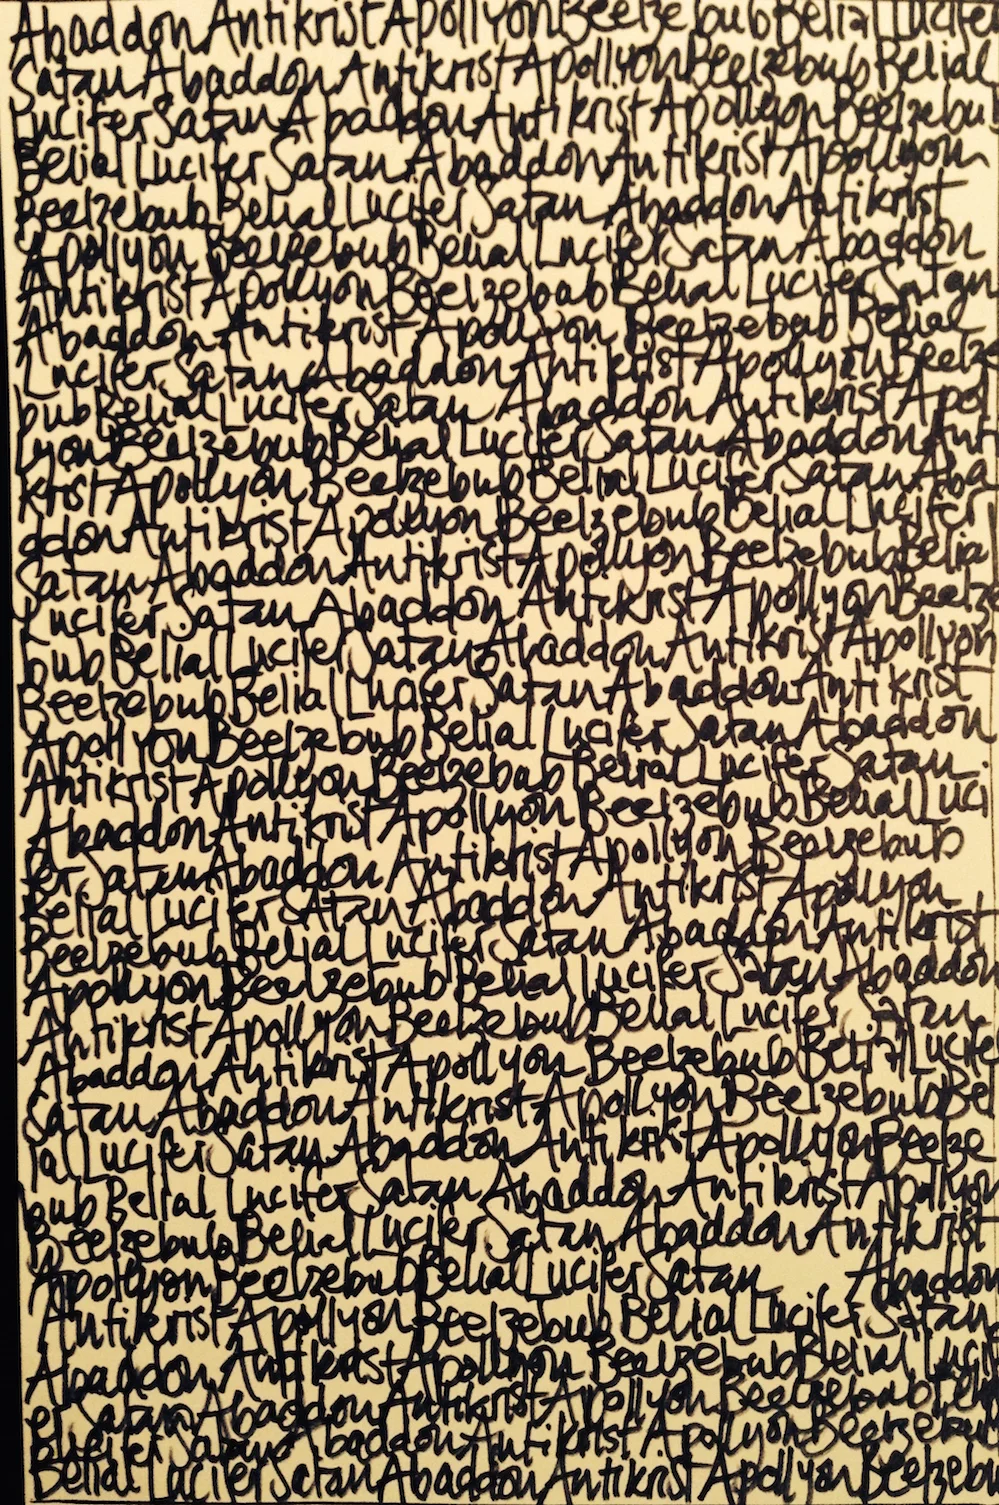 Abaddon Antikrist Apollyon Beelzebub Belial Lucifer
Satan Abaddon Antikrist Apollyon Beelzebub Belial
Lucifer Satan Abaddon Antikrist Apollyon Beelzebu
Belial Lucifer Satan Abaddon Antikrist Apollyon
Beelzebub Belial Lucifer Satan Abaddon Antikrist
Apollyon Beelzebub Belial Lucifer Satan Abaddon
Antikrist Apollyon Beelzebub Belial Lucifer Satan
Abaddon Antikrist Apollyon Beelzebub Belial
Lucifer Satan Abaddon Antikrist Apollyon Beelze
bub Belial Lucifer Satan Abaddon Antikrist Apol
lyon Beelzebub Belial Lucifer Satan Abaddon Anti
krist Apollyon Beelzebub Belial Lucifer Satan Aba
ddon Antikrist Apollyon Beelzebub Belial Lucifer
Satan Abaddon Antikrist Apollyon Beelzebub Belia
Lucifer Satan Abaddon Antikrist Apollyon Beelze
bub Belial Lucifer Satan Abaddon Antikrist Apollyon
Beelzebub Belial Lucifer Satan Abaddon Antikrist
Apollyon Beelzebub Belial Lucifer Satan Abaddon
Antikrist Apollyon Beelzebub Belial Lucifer Satan
Abaddon Antikrist Apollyon Beelzebub Belial Luci
fer Satan Abaddon Antikrist Apollyon Beelzebub
Belial Lucifer Satan Abaddon Antikrist Apollyon
Beelzebub Belial Lucifer Satan Abaddon Antikrist
Apollyon Beelzebub Belial Lucifer Satan Abaddon
Antikrist Apollyon Beelzebub Belial Lucifer Satan
Abaddon Antikrist Apollyon Beelzebub Belial Lucifer
Satan Abaddon Antikrist Apollyon Beelzebub Bel
ial Lucifer Satan Abaddon Antikrist Apollyon Beelze
bub Belial Lucifer Satan Abaddon Antikrist Apollyon
Beelzebub Belial Lucifer Satan Abaddon Antikrist
Apollyon Beelzebub Belial Lucifer Satan Abaddon
Antikrist Apollyon Beelzebub Belial Lucifer Satan
Abaddon Antikrist Apollyon Beelzebub Belial Lucif
er Satan Abaddon Antikrist Apollyon Beelzebub
Lucifer Satan Abaddon Antikrist Apollyon Beelzebub
Belial Lucifer Satan Abaddon Antikrist Apollyon Beelzebu